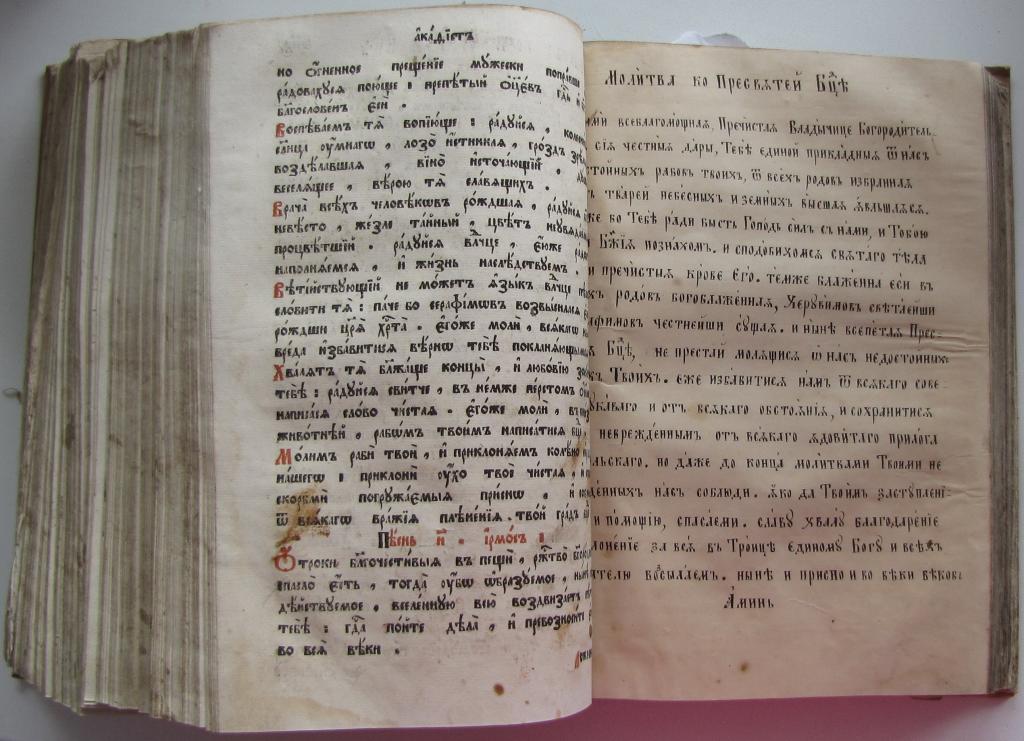 АКАДІСТЪ
но Ѻгненное прещенїе мꙋжески поправше
радовахꙋсѧ поюще : препѣтый Оц҃євъ гдⷭ҇ь и
благословенъ Єсѝ .
Воспѣваемъ тѧ̀ вопїюще : радꙋйсѧ ,
ꙋмнагѡ , лозо̀ истиннаѧ , гроздъ
воздѣлавшаѧ , вїно̀ источающїй .
веселѧщее , вѣрою тѧ̀ славѧщихъ .
Врача̀ всѣхъ человѣкѡвъ рождшаѧ , радꙋйсѧ
невѣсто , жезле тайный , цвѣтъ неꙋвѧдаемый
процвѣтшїй . радꙋйсѧ влⷣчце , Єюже
наполнѧемсѧ , и жизнь наслѣдствꙋемъ .
Вѣтїйствꙋющїй не можетъ ѧзыкъ влⷣчце
словити тѧ̀ : паче бо серафїмѡвъ возвысиласѧ
рождши цр҃ѧ̀ хрⷭ҇та̀ . Єгоже моли̂ , всѧкагѡ
вреда̀ избавитисѧ вѣрнѡ тебѣ поклонѧющымсѧ
Хвалѧтъ тѧ̀ блажаще концы , и любовїю
тебѣ : радꙋйсѧ свитче , въ немже перстомъ
написасѧ слово чистаѧ . Єгоже моли̂ , въ
животнѣй , рабѡмъ твоимъ написатисѧ
Молимъ раби твои , и приклонѧемъ колѣно
нашегѡ : приклони ꙋхо твоѐ чистаѧ ,
скорбми погрꙋжаемыѧ приснѡ ,
ѿ всѧкагѡ вражїѧ плѣненїѧ . твой градъ
Пѣснь и҃ . ірмосъ :
Отроки благочестивыѧ въ пещи , ржⷭ҇тво
спасло Єсть , тогда ꙋбѡ ѡбразꙋемое ,
дѣйствꙋемое , вселеннꙋю всю воздвизаетъ
тебѣ : гдⷭ҇а пойте дѣла , и превозносите
во всѧ вѣки .
Молитва ко Пресвѧтей Бц҃ѣ
всеблагомощнаѧ, Пречистаѧ Владычице Богородитель-
сїѧ честныѧ дары, Тебѣ единой прикладныѧ ѿ насъ
недостойныхъ рабовъ твоихъ, ѿ всѣхъ родовъ избраннаѧ
тварей небесныхъ и земныхъ вышшаѧ ѧвльшаѧсѧ.
же бо Тебѣ ради бысть Господь силъ съ нами, и Тобою
Бж҃їѧ познахомъ. и сподобихомсѧ свѧтаго тѣла
и пречистыѧ крове Єго. темже блаженна еси въ
родовъ богоблаженнаѧ, Херꙋвимовъ свѣтлейши
Серафимовъ честнейши сꙋщаѧ. и нынѣ всепетаѧ Прес-
Бц҃е, не престай молѧщисѧ ѿ насъ недостойныхъ
Твоихъ. еже избавитисѧ намъ ѿ всѧкаго сове-
лꙋкаваго и отъ всѧкаго обстоѧнїѧ, и сохранитисѧ
неврежденнымъ отъ всѧкаго ѧдовитаго прилога
дїавольскаго. но даже до конца молитвами Твоими не
осꙋжденныхъ насъ соблюди. ѧко да Твоимъ застꙋпленї-
и помощїю, спасаеми. славꙋ хвалꙋ благодаренїе
поклоненїе за всѧ въ Троице единомꙋ Богꙋ и всѣхъ
Создателю возсылаемъ. нынѣ и присно и во вѣки вѣковъ
Аминь